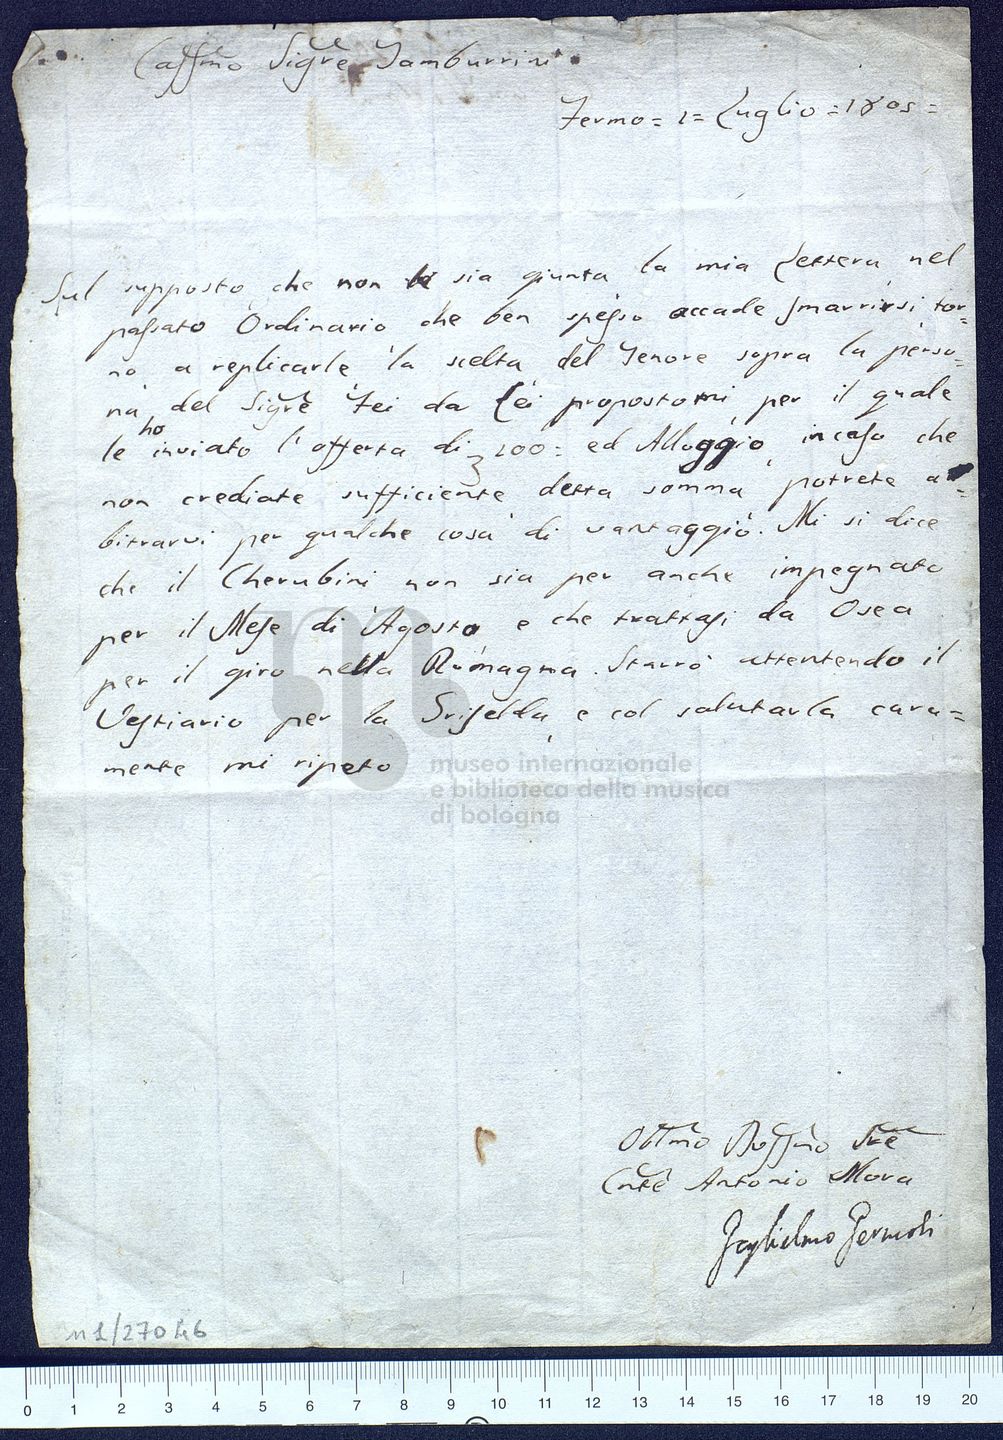 Caſſmo Sigre Tamburrini
Fermo = 1 = Luglio = 1805 =
Sul supposto, che non le sia giunta la mia Lettera, nel
paſsato Ordinario che ben speſso accade smarrirsi, tor=
no, a replicarle la scelta del Tenore sopra la perso=
na, del Sigre Fei da Lei propostomi, per il quale
le ho inviato l'offerta di 100 = ed Alloggio, in caso che
non crediate sufficiente detta somma, potrete a=
bitrarvi per qualche cosa di vantaggio. Mi si dice
che il Cherubini non sia per anche impegnato
per il Mese di Agosto, e che trattasi da Osea
per il giro nella Romagna. Starrò attentendo il
Vestiario per la Griselda, e col salutarla cara=
mente mi ripeto
museo internazionale
e biblioteca della musica
di bologna
Obblmo Affmo Sre
Cnte Antonio Mora
n1/27046
0 1 2 3 4 5 6 7 8 9 10 11 12 13 14 15 16 17 18 19 20